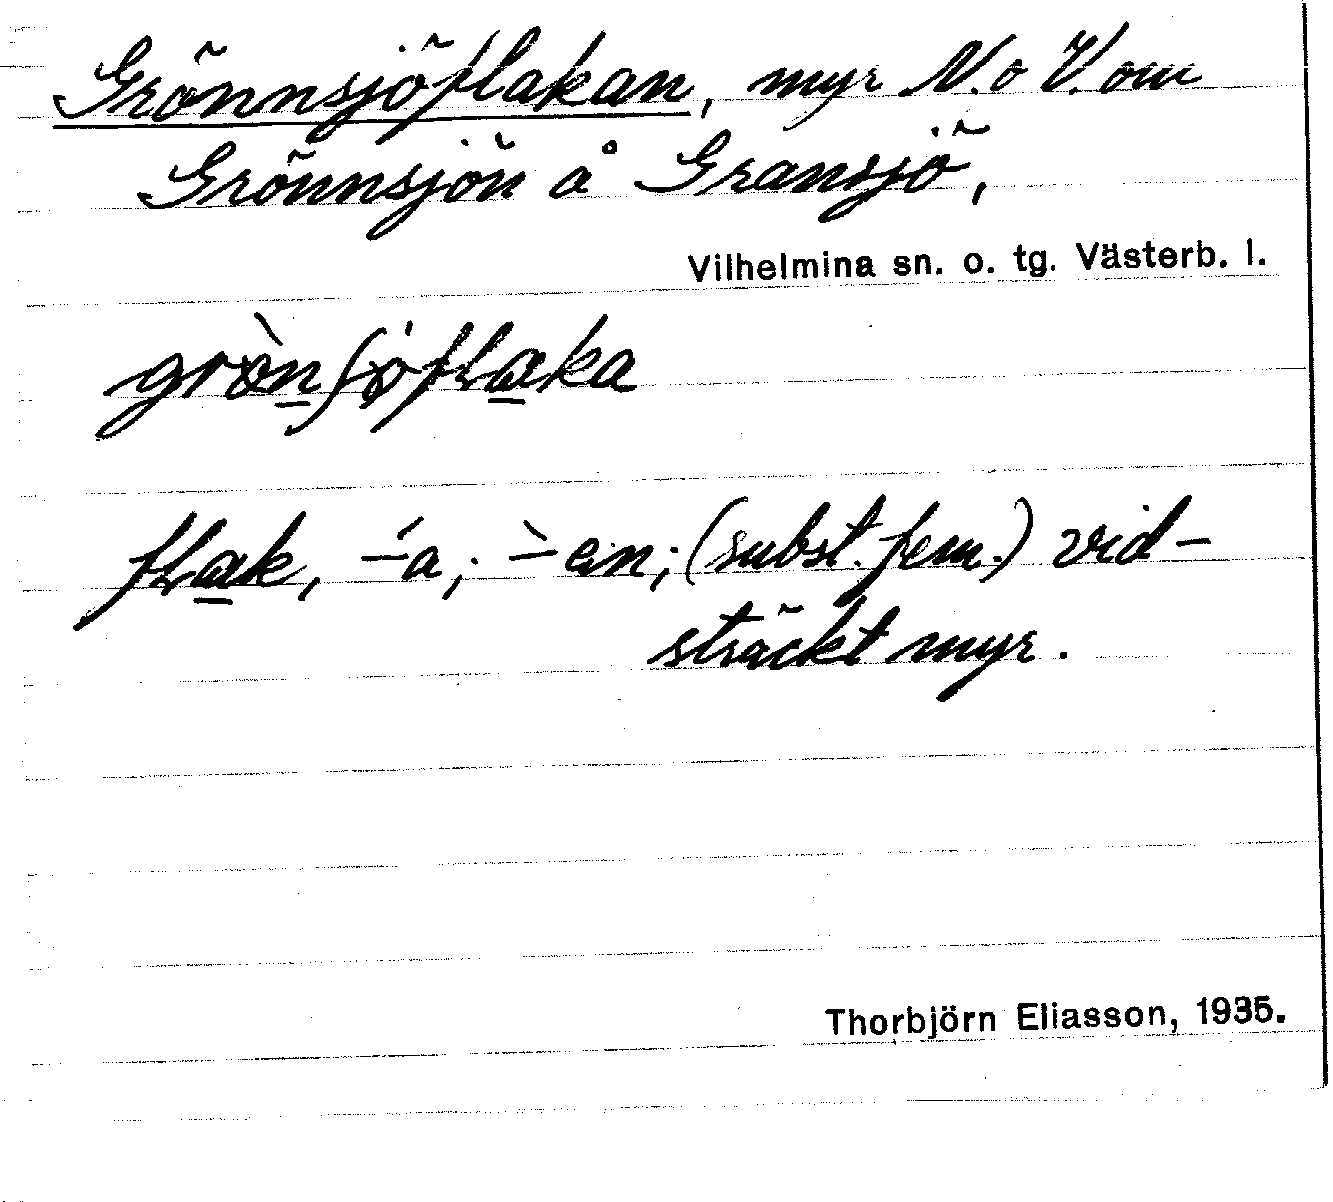 Grönnsjöflakan, myr N. o V. om
Grönnsjön å Gransjö,
Vilhelmina sn. o. tg. Västerb. l.
flak, -́a; -̀en; (subst. fem.) vid-
sträckt myr.
Thorbjörn Eliasson, 1935.